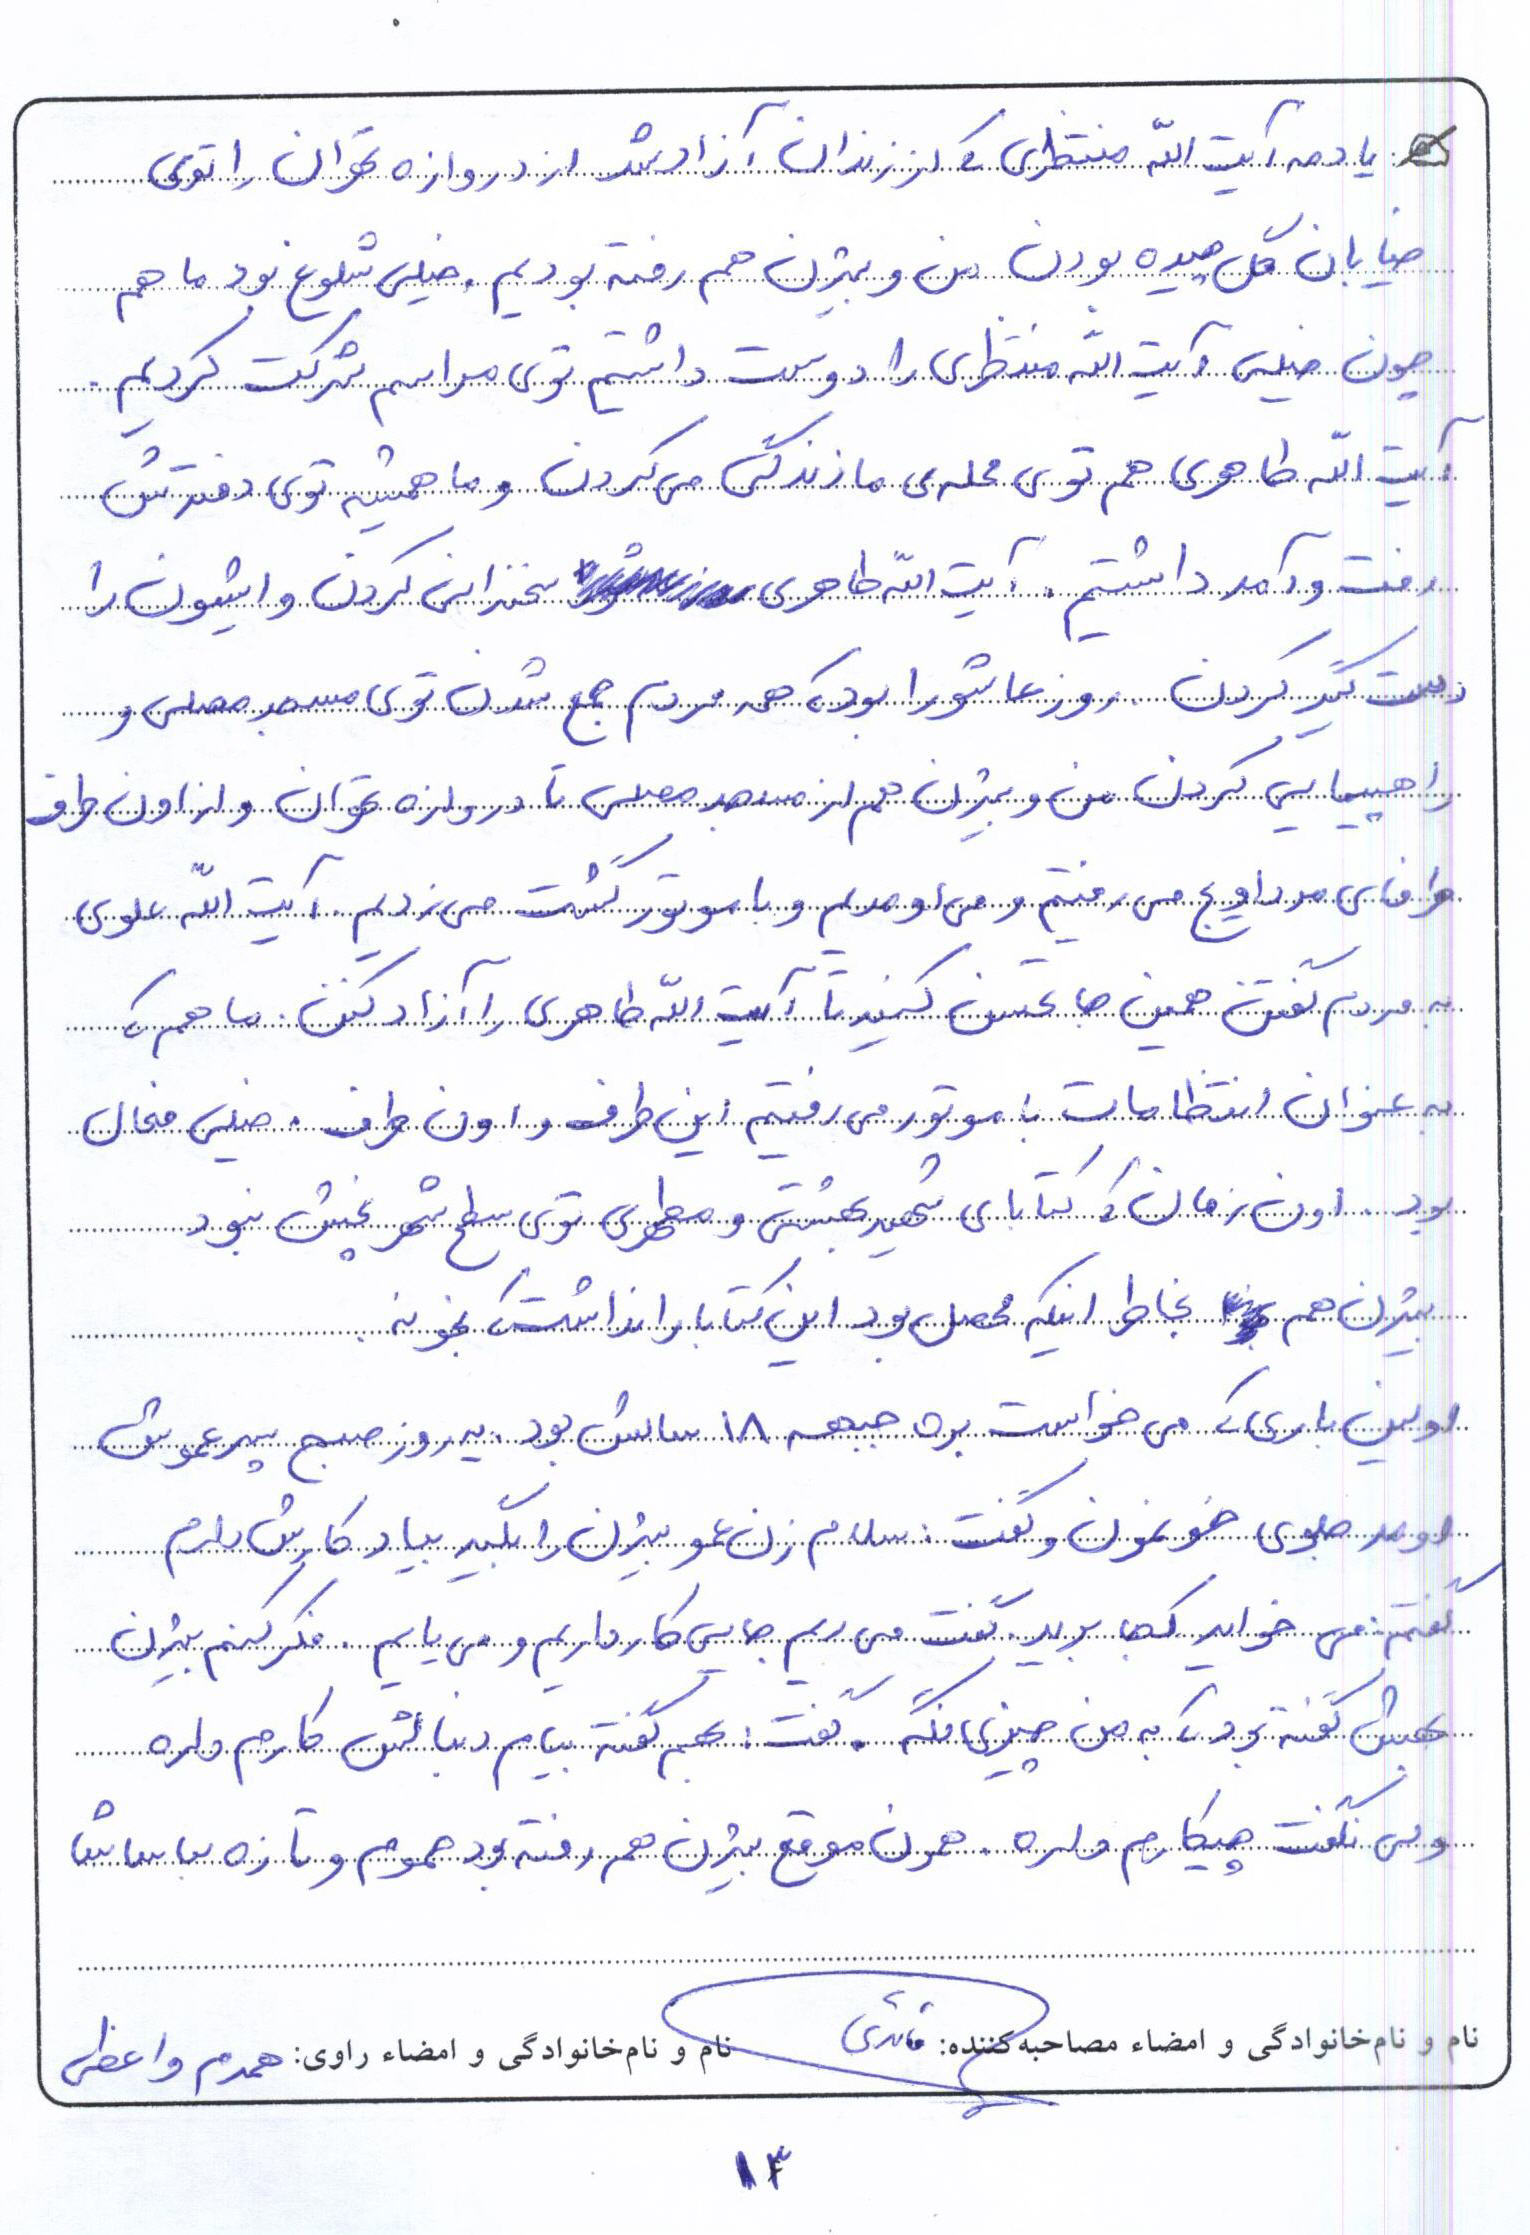 یادمه آیت الله منتظری که از زندان آزاد شد از دروازه تهران را توی
خیابان گل چیده بودن من و بیژن هم رفته بودیم. خیلی شلوغ بود ما هم
چون خیلی آیت الله منتظری را دوست داشتیم توی مراسم شرکت کردیم.
آیت الله طاهری هم توی محله‌ی ما زندگی می‌کردن و ما همیشه توی دفترش
رفت و آمد داشتیم. آیت الله طاهری سخنرانی کردن و ایشون را
دست گیر کردن. روز عاشورا بود که همه مردم جمع شدن توی مسجد مصلی و
راهپیمایی کردن من و بیژن هم از مسجد مصلی تا دروازه تهران و از اون طرف
طرفای مرداویج می‌رفتیم و می‌اومدیم و با موتور گشت می‌زدیم. آیت الله علوی
به مردم گفتن همین جا تحصن کنید تا آیت الله طاهری را آزاد کنن. ما هم که
به عنوان انتظامات با موتور می‌رفتیم این طرف و اون طرف. خیلی فعال
بود. اون زمان که کتابای شهید بهشتی و مطهری توی سطح شهر پخش نبود
بیژن هم بخاطر اینکه محصل بود این کتابا را نذاشت که بخونه.
اولین باری که می خواست بره جبهه ۱۸ سالش بود. یه روز صبح پسر عموش
اومد جلوی خونمون و گفت: سلام زن عمو بیژن را بگید بیاد کارش دارم
گفتم: می خواید کجا برید. گفت می ریم جایی کار داریم و می یایم. فکر کنم بیژن
بهش گفته بود که به من چیزی نگه. گفت: بهم گفته بیام دنبالش کارم داره
ولی نگفت چیکارم داره. همون موقع بیژن هم رفته بود حموم و تازه با ساشا
نام و نام‌خانوادگی و امضاء مصاحبه‌کننده: نام و نام‌خانوادگی و امضاء راوی: همدم واعظی
۱۳